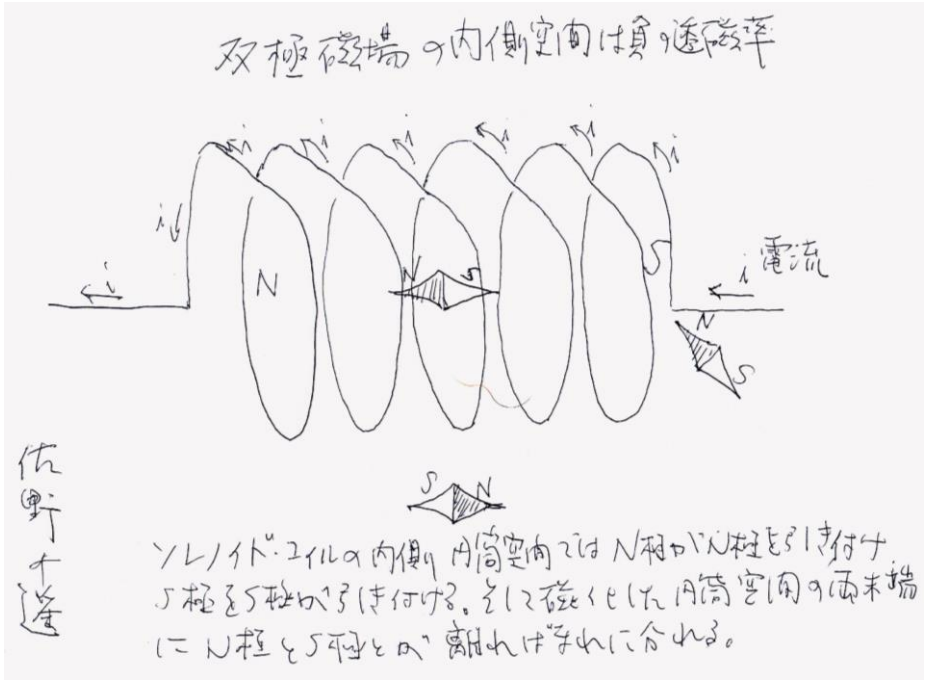 双極磁場の内側空間は負の透磁率
i i i i i i
i
i
N
N S
S
i 電流
N
S
S N
佐野千遥
ソレノイド・コイルの内側円筒空間ではN極がN極を引き付け
S極をS極が引き付ける。そして磁化した円筒空間の両末端
にN極とS極とが離ればなれに分れる。